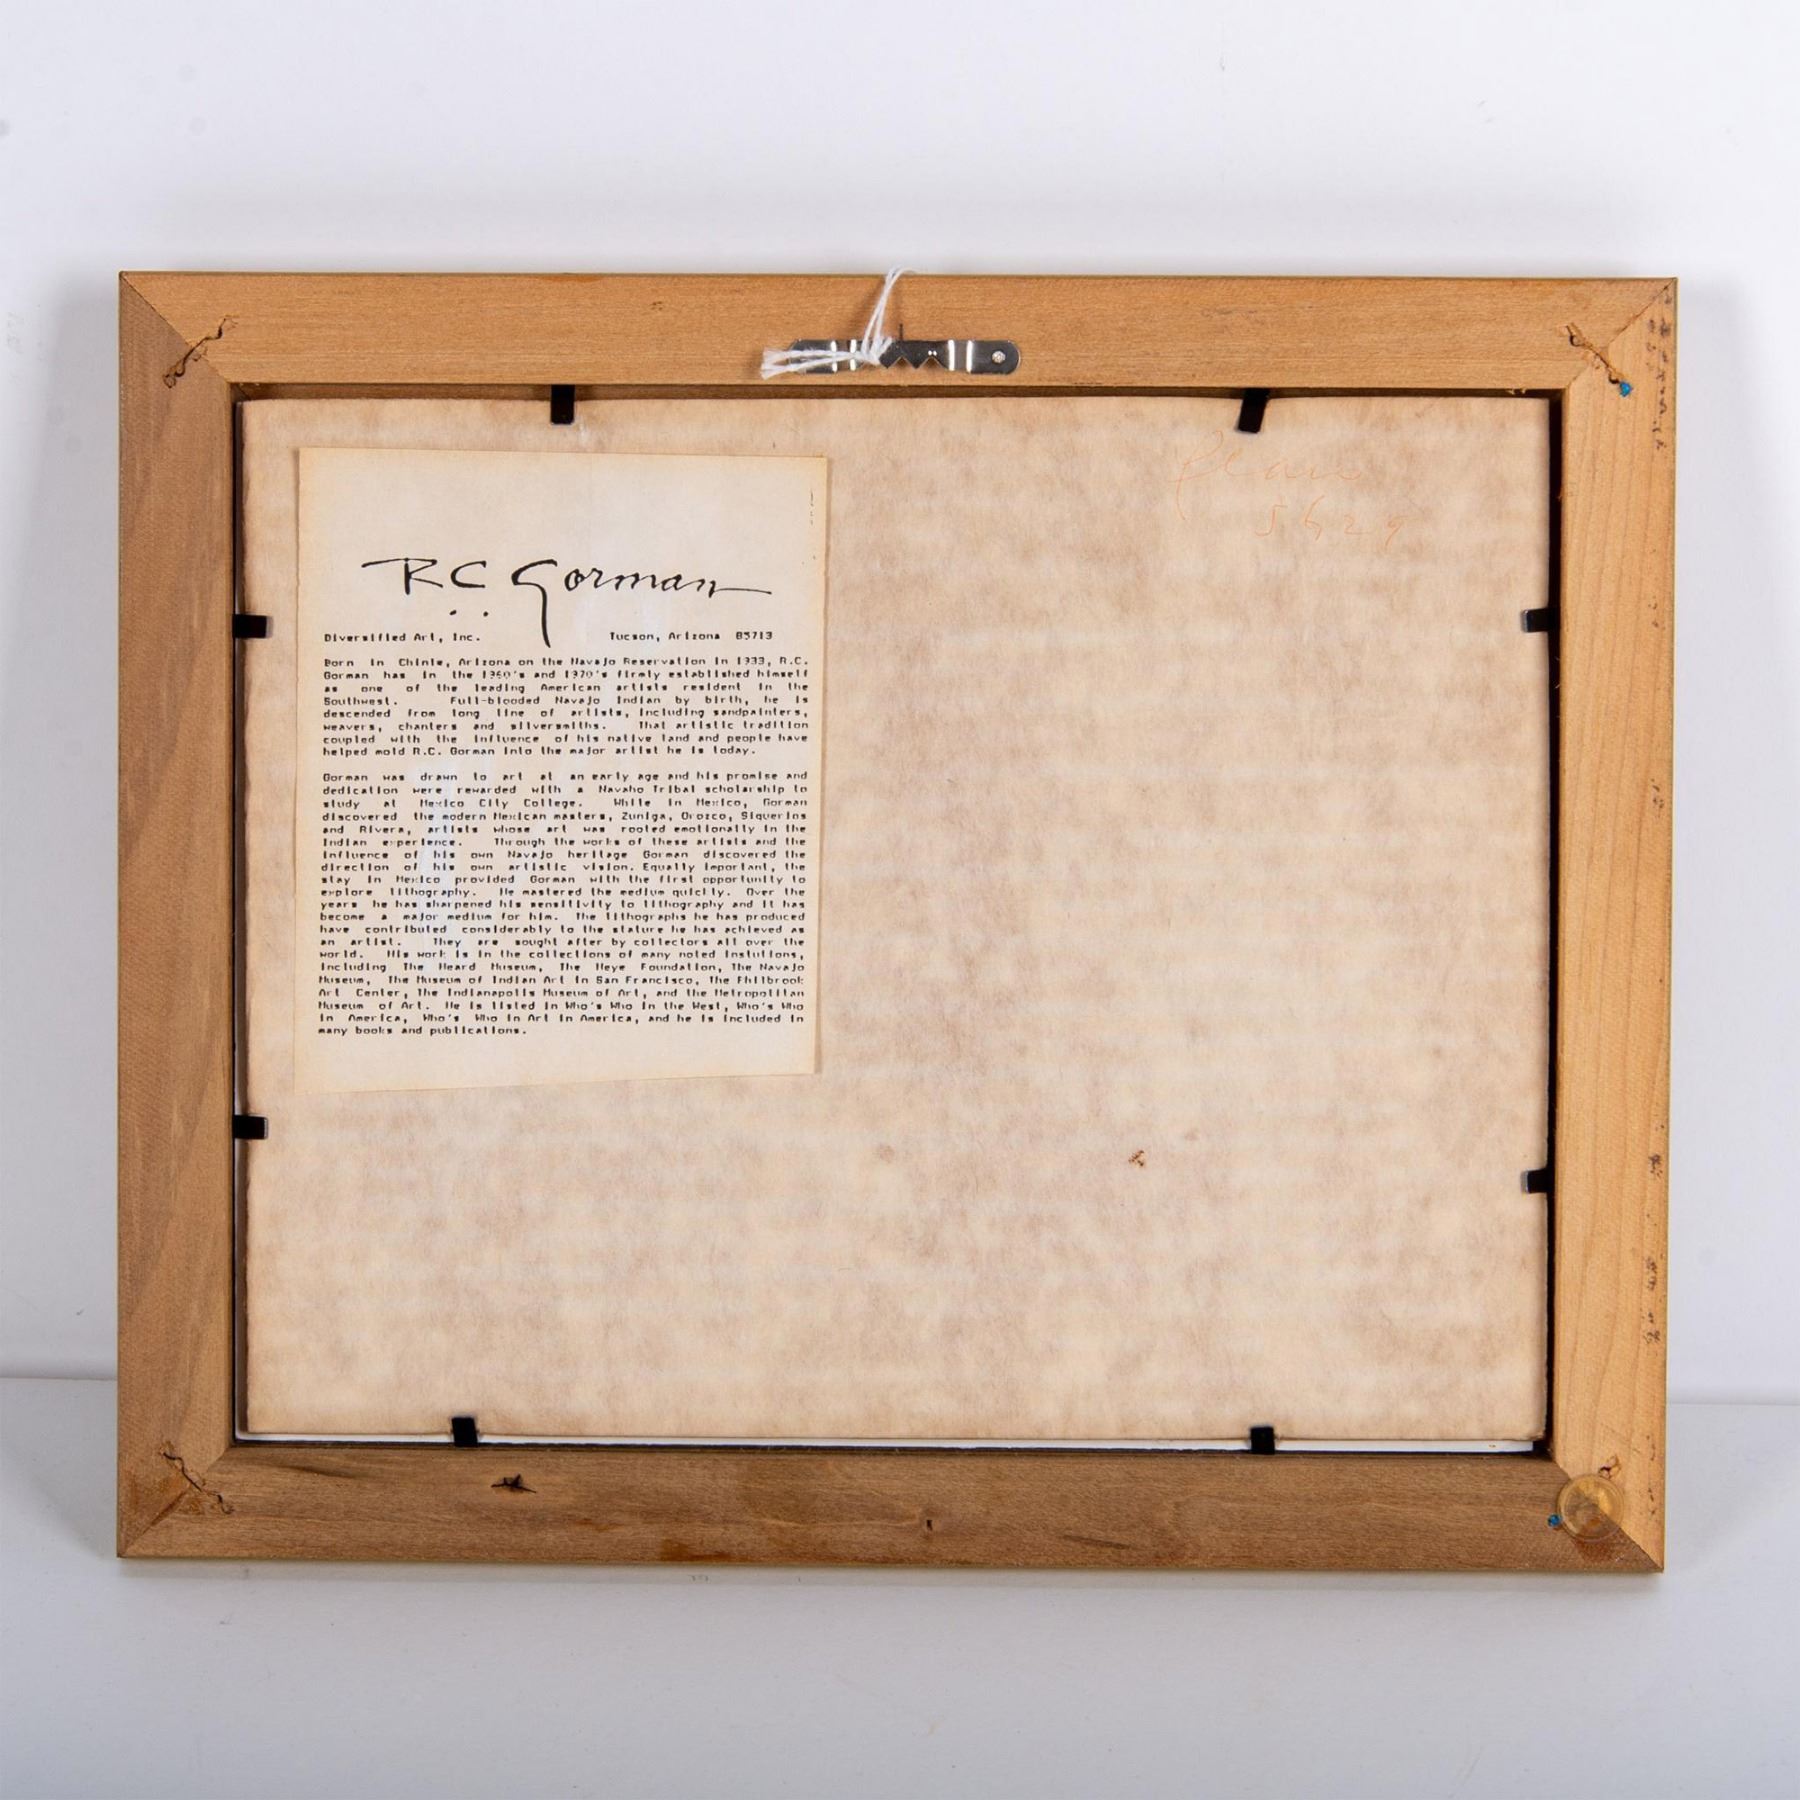 R.C. Gorman
Diversified Art, Inc. Tucson, Arizona 85713
Born in Chinle, Arizona on the Navajo Reservation in 1933, R.C.
Gorman has in the 1960's and 1970's firmly established himself
as one of the leading American artists resident in the
Southwest. Full-blooded Navajo Indian by birth, he is
descended from long line of artists, including sandpainters,
weavers, chanters and silversmiths. That artistic tradition
coupled with the influence of his native land and people have
helped mold R.C. Gorman into the major artist he is today.
Gorman was drawn to art at an early age and his promise and
dedication were rewarded with a Navaho Tribal scholarship to
study at Mexico City College. While in Mexico, Gorman
discovered the modern Mexican masters, Zuniga, Orozco, Siquerios
and Rivera, artists whose art was rooted emotionally in the
Indian experience. Through the works of these artists and the
influence of his own Navajo heritage Gorman discovered the
direction of his own artistic vision. Equally important, the
stay in Mexico provided Gorman with the first opportunity to
explore lithography. He mastered the medium quickly. Over the
years he has sharpened his sensitivity to lithography and it has
become a major medium for him. The lithographs he has produced
have contributed considerably to the stature he has achieved as
an artist. They are sought after by collectors all over the
world. His work is in the collections of many noted instutions,
including The Heard Museum, The Heye Foundation, The Navajo
Museum, The Museum of Indian Art in San Francisco, The Philbrook
Art Center, The Indianapolis Museum of Art, and the Metropolitan
Museum of Art. He is listed in Who's Who in the West, Who's Who
in America, Who's Who in Art in America, and he is included in
many books and publications.
5629